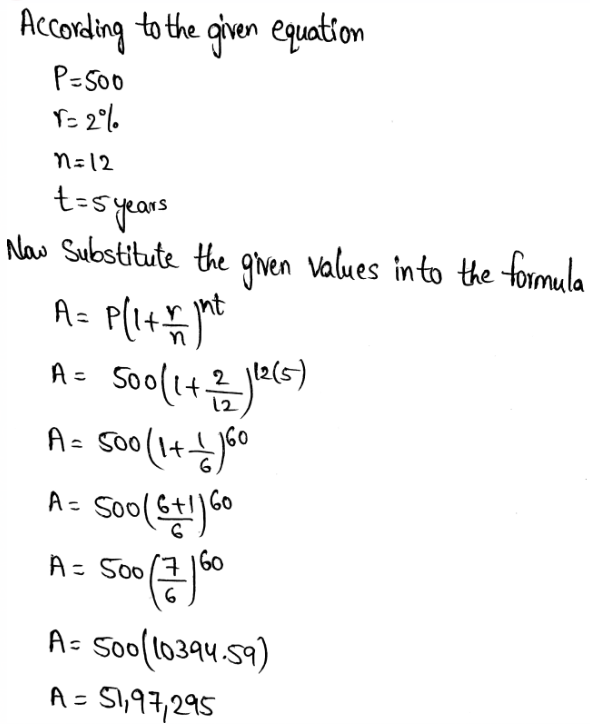 According to the given equation
P=500
r=2%
n=12
t=5 years
Now Substitute the given values into the formula
A = P(1+r/n)^nt
A = 500(1+2/12)^12(5)
A = 500(1+1/6)^60
A = 500(6+1/6)^60
A = 500(7/6)^60
A = 500(10394.59)
A = 51,97,295